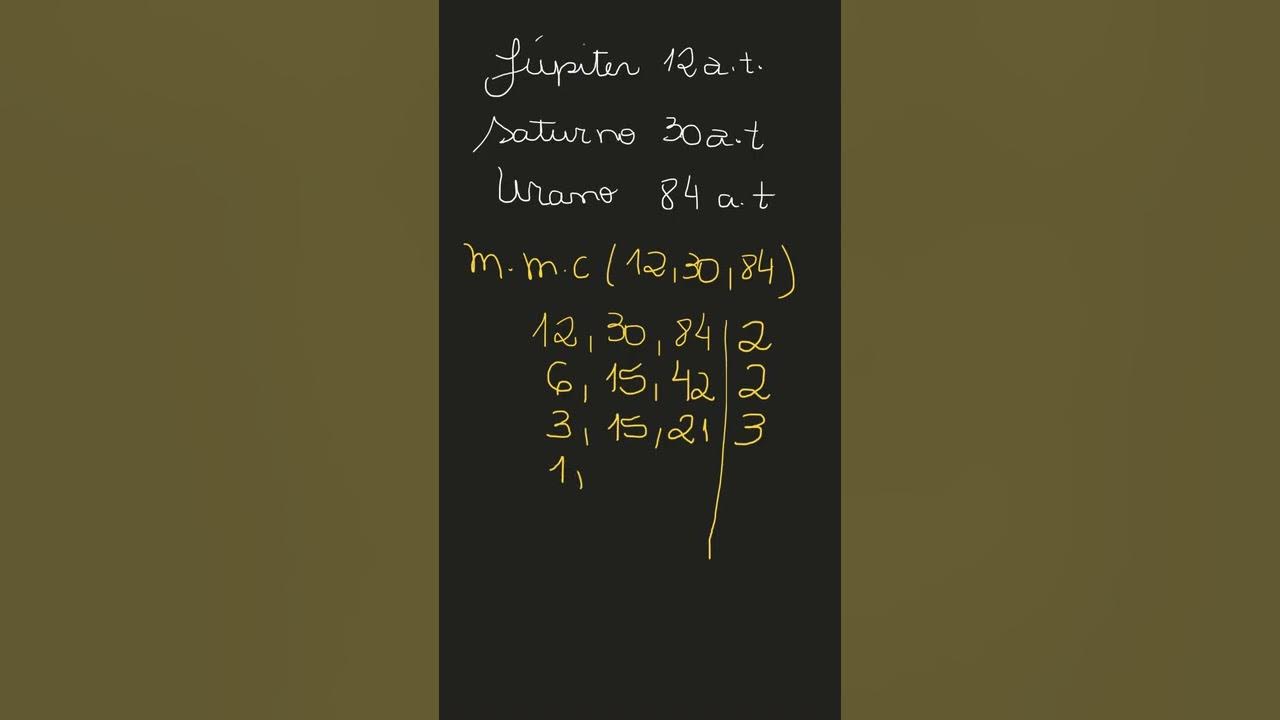 Júpiter 12 a.t.
Saturno 30 a.t
Urano 84 a.t
m.m.c (12,30,84)
12, 30, 84 | 2
6, 15, 42 | 2
3, 15, 21 | 3
1,